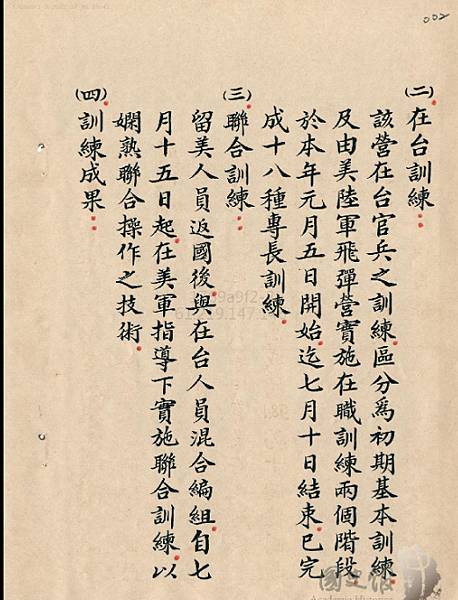 002
(二)在台訓練：
該營在台官兵之訓練區分爲初期基本訓練
及由美陸軍飛彈營實施在職訓練兩個階段
於本年元月五日開始迄七月十日結束已完
成十八種專長訓練
(三)聯合訓練：
留美人員返國後與在台人員混合編組自七
月十五日起在美軍指導下實施聯合訓練以
嫻熟聯合操作之技術
(四)訓練成果：
國史館
Academia Historica